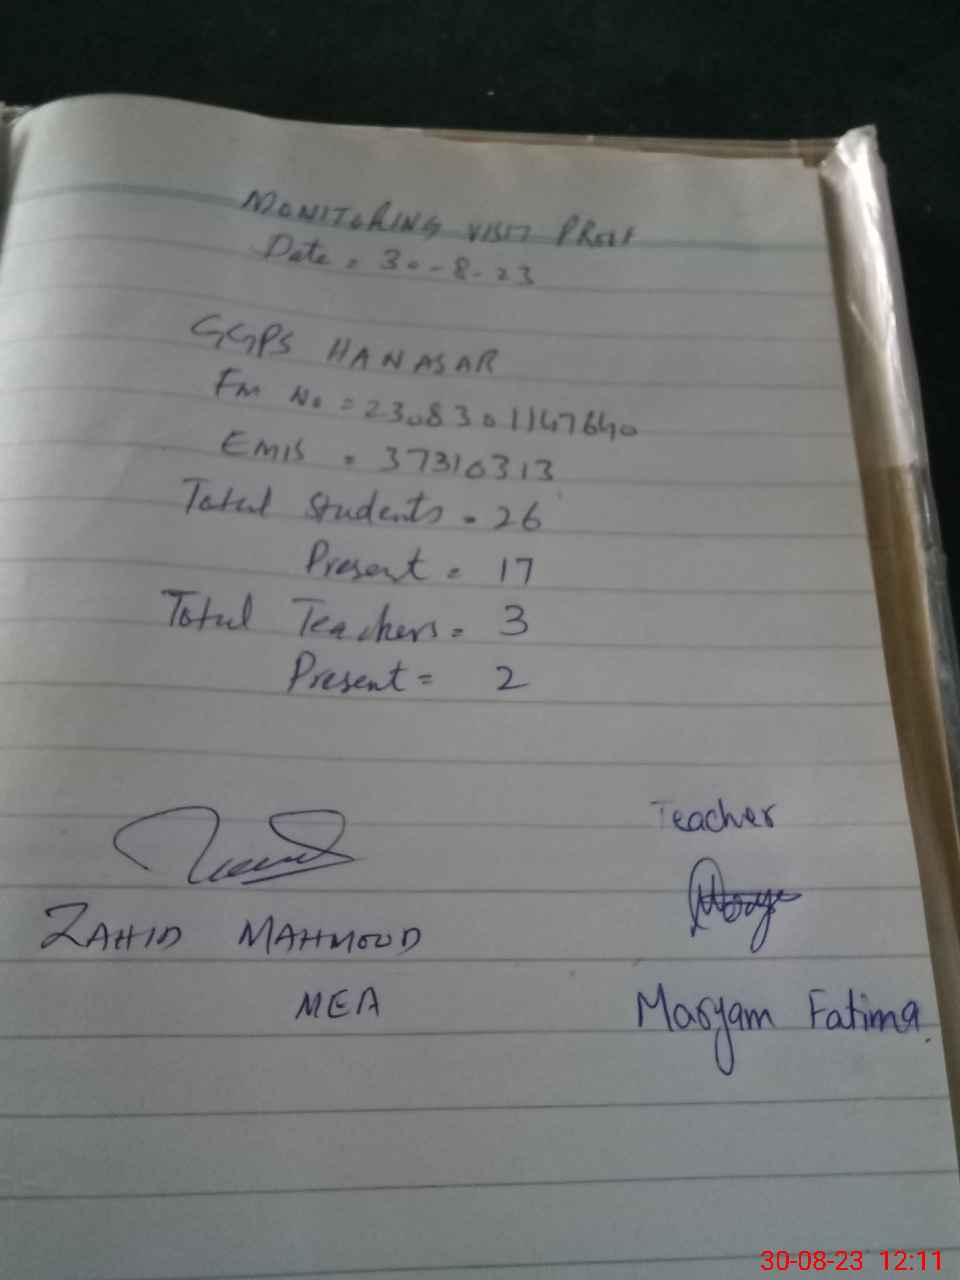 MONITORING VISIT PROOF
Date = 30-8-23
GGPS HANASAR
Fm No = 2308301147640
EMIS = 37310313
Total Students = 26
Present = 17
Total Teachers = 3
Present = 2
Teacher
ZAHID MAHMOOD
MEA
Maryam Fatima.
30-08-23 12:11